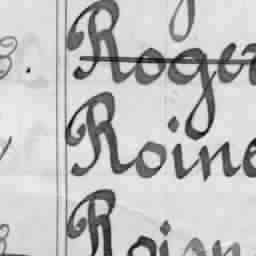 Roger
Roine
Roign